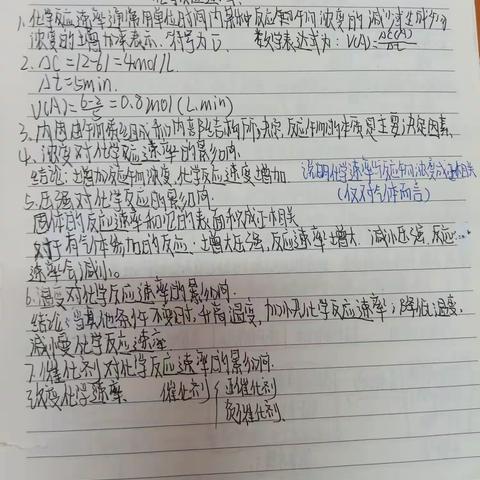 1. 化学反应速率通常用单位时间内某种反应物的浓度的减少或生成物
浓度的增加来表示. 符号为v. 数学表达式为: V(A)=Δc(A)/Δt
2. ΔC=|2-6|=4mol/L
Δt=5min.
V(A)= =0.8mol(L.min)
3. 内因由物质组成和内部结构所决定, 反应物的本质是主要决定因素.
4. 浓度对化学反应速率的影响.
结论: 增加反应物浓度, 化学反应速度增加 说明化学速率与反应物浓度成正相关
5. 压强对化学反应的影响. (仅对气体而言)
固体的反应速率和它的表面积成正相关
对于有气体参加的反应: 增大压强, 反应速率增大. 减小压强, 反应
速率会减小.
6. 温度对化学反应速率的影响.
结论: 当其他条件不变时, 升高温度, 加快化学反应速率; 降低温度,
减慢化学反应速率
7. 催化剂对化学反应速率的影响.
改变化学速率. 催化剂{正催化剂
负催化剂.